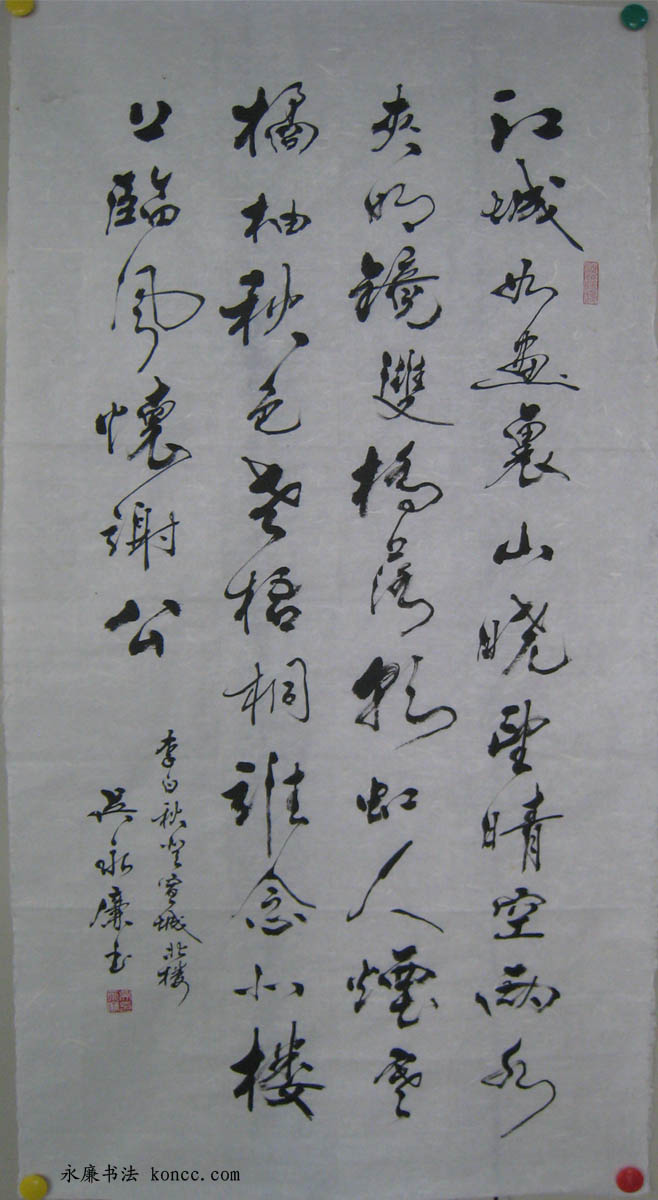 江城如畫裏山晓望晴空兩水
夾明鏡雙橋落彩虹人煙寒
橘柚秋色老梧桐誰念北楼
上臨風懷謝公
李白秋登宣城北楼
吴永廉书
永廉书法 koncc.com